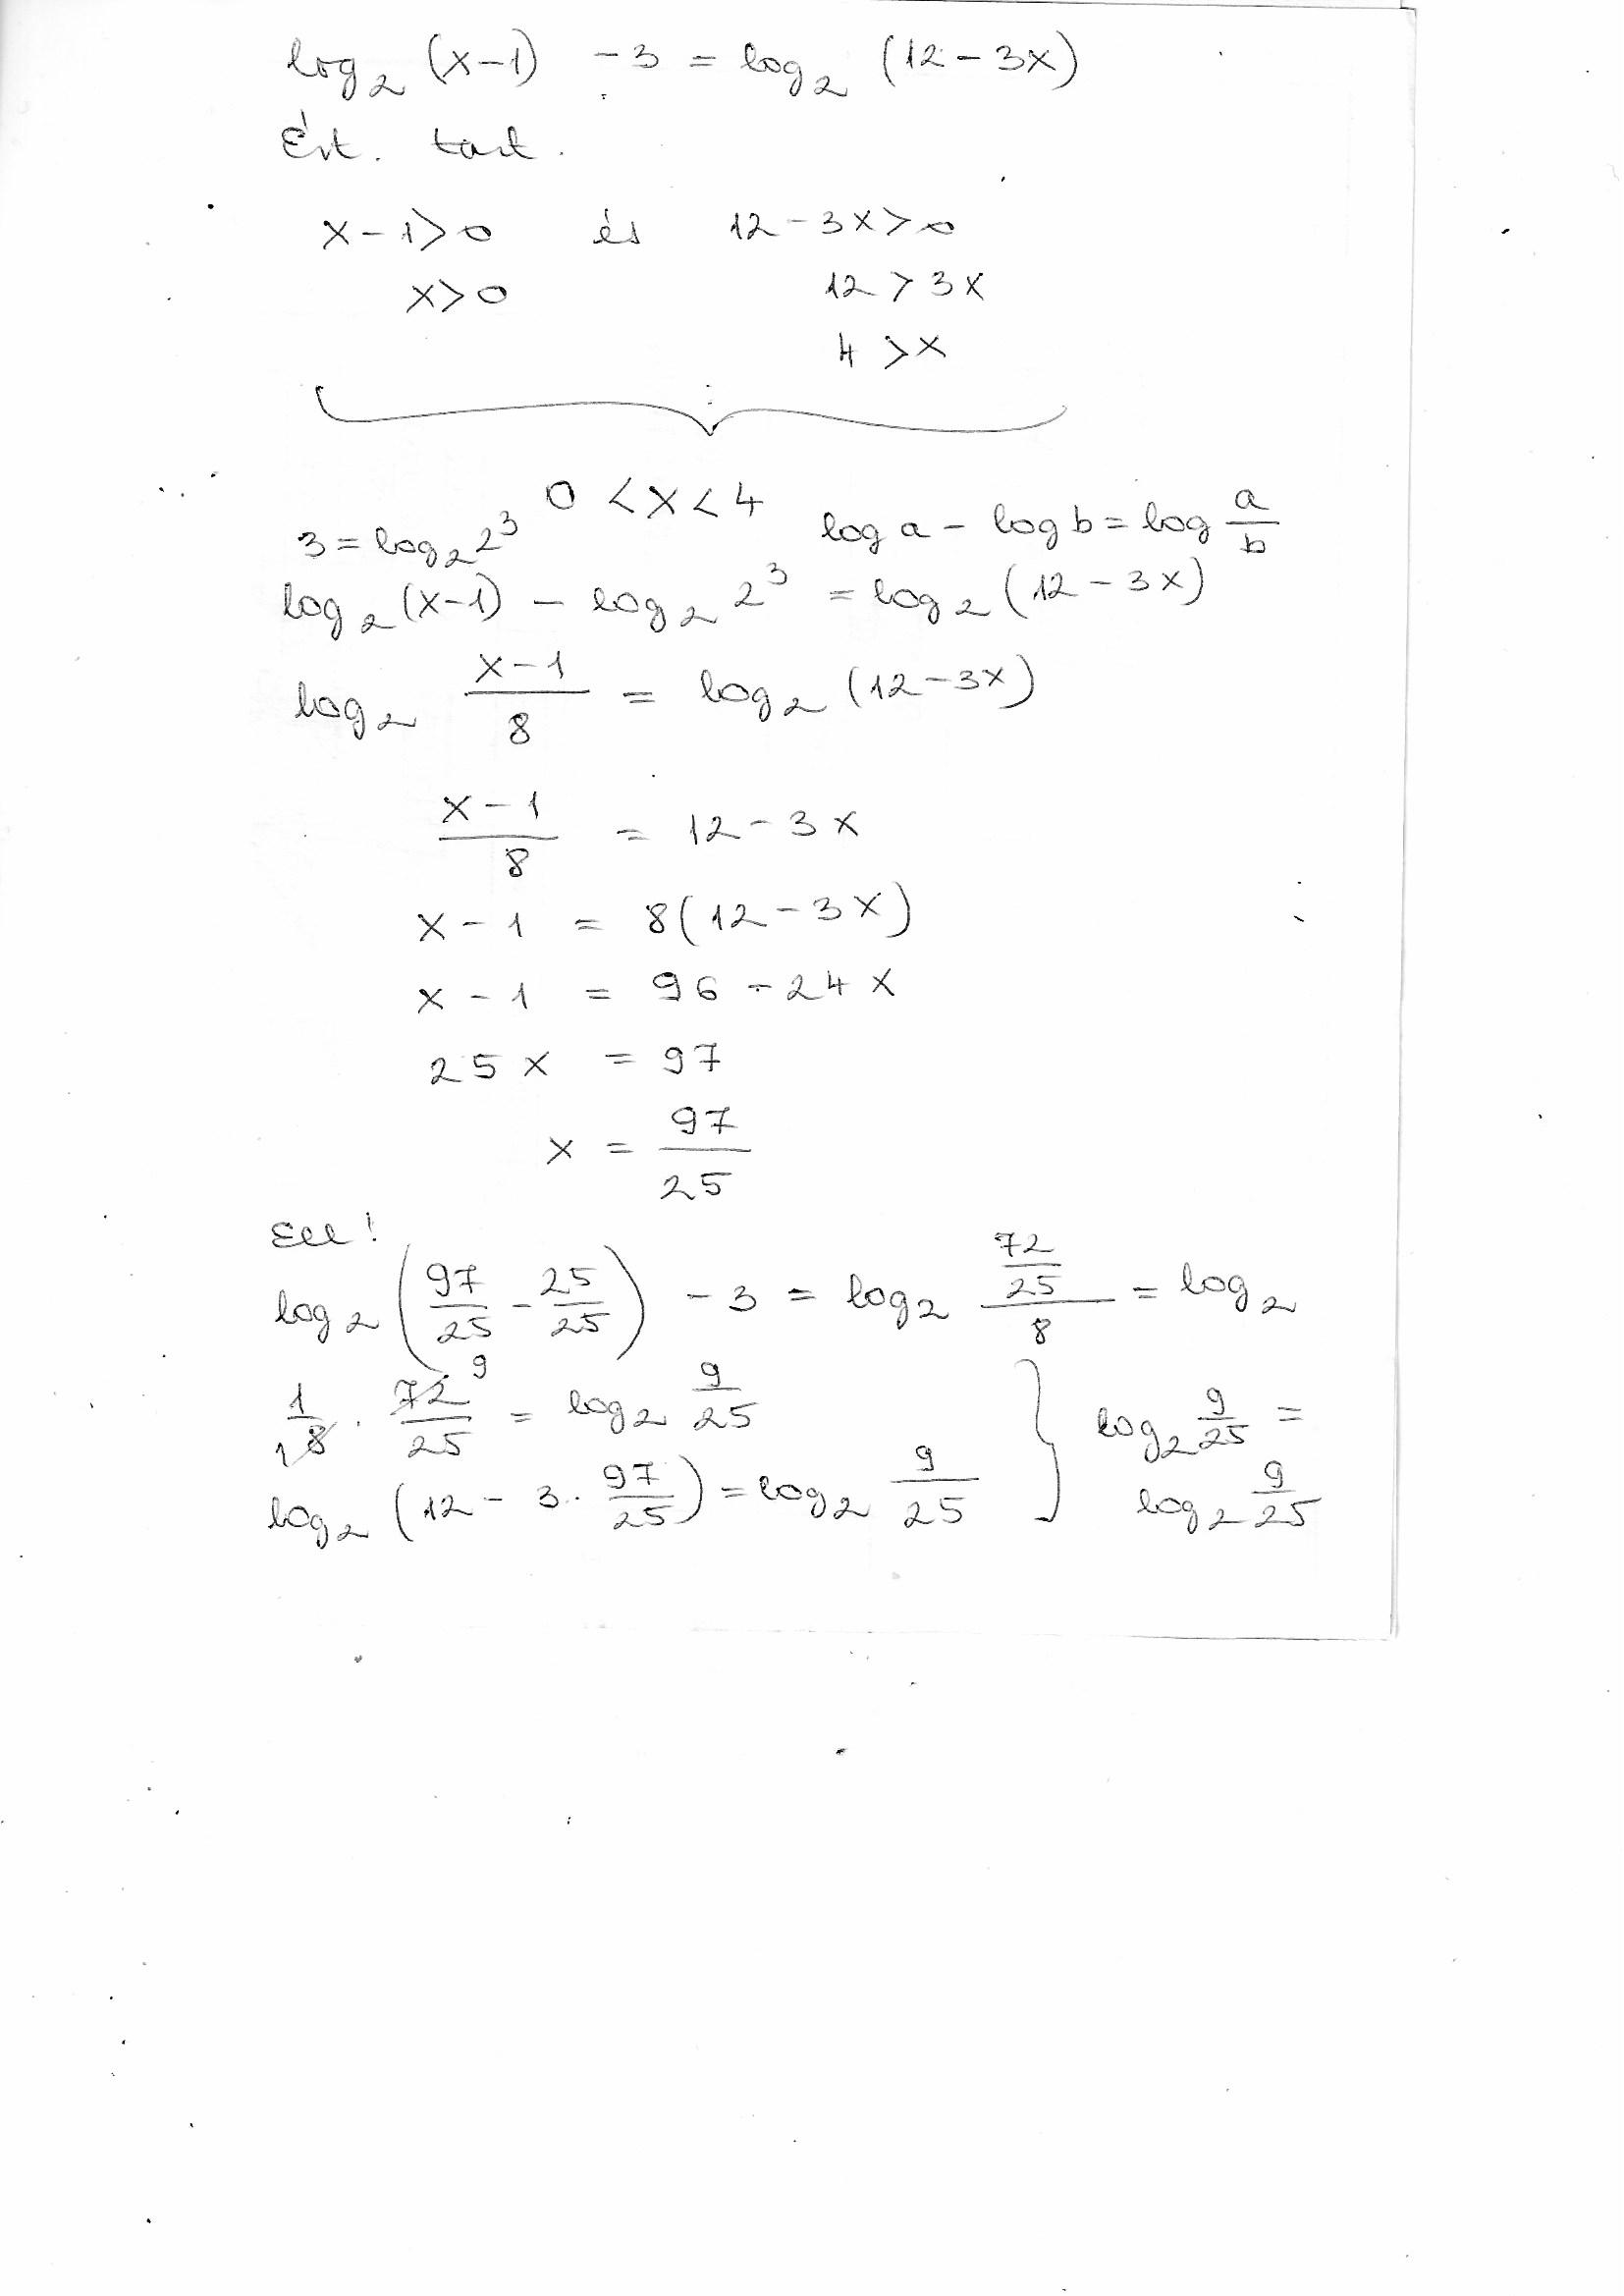 log₂ (x-1) - 3 = log₂ (12 - 3x)
Ért. tart.
x - 1 > 0 és 12 - 3x > 0
x > 0 12 > 3x
4 > x
0 < x < 4
3 = log₂ 2³ log a - log b = log a/b
log₂ (x-1) - log₂ 2³ = log₂ (12 - 3x)
log₂ (x-1)/8 = log₂ (12 - 3x)
(x-1)/8 = 12 - 3x
x - 1 = 8(12 - 3x)
x - 1 = 96 - 24x
25x = 97
x = 97/25
Ell!
log₂ (97/25 - 25/25) - 3 = log₂ (72/25)/8 = log₂
1/8 1 · 72/25 9 = log₂ 9/25 } log₂ 9/25 =
log₂ (12 - 3 · 97/25) = log₂ 9/25 log₂ 9/25